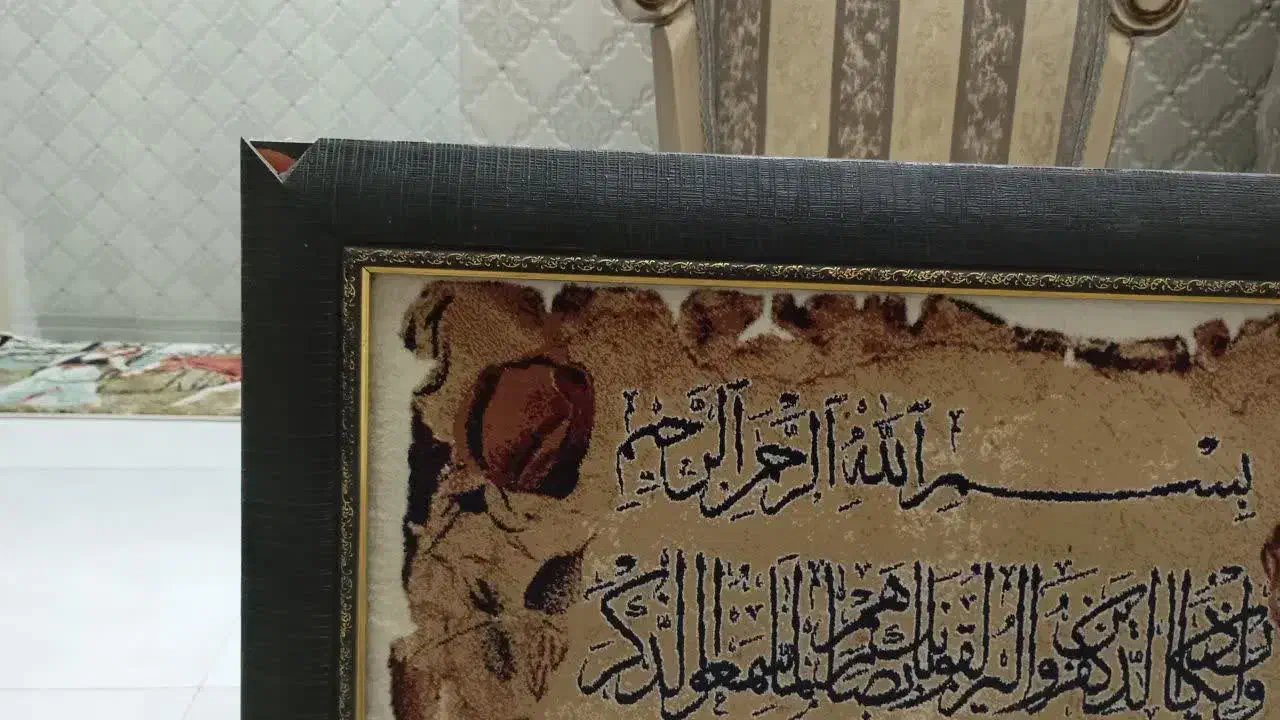 بِسْمِ اللهِ الرَّحْمٰنِ الرَّحِيْمِ
وَإِنْ يَكَادُ الَّذِينَ كَفَرُوا لَيُزْلِقُونَكَ بِأَبْصَارِهِمْ لَمَّا سَمِعُوا الذِّكْرَ